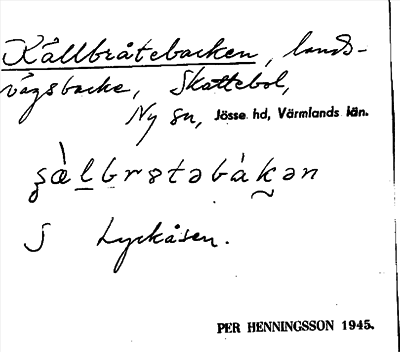 Källbråtebacken, lands-
vägsbacke, Skattebol,
Ny sn, Jösse hd, Värmlands län.
S Lyckåsen.
PER HENNINGSSON 1945.